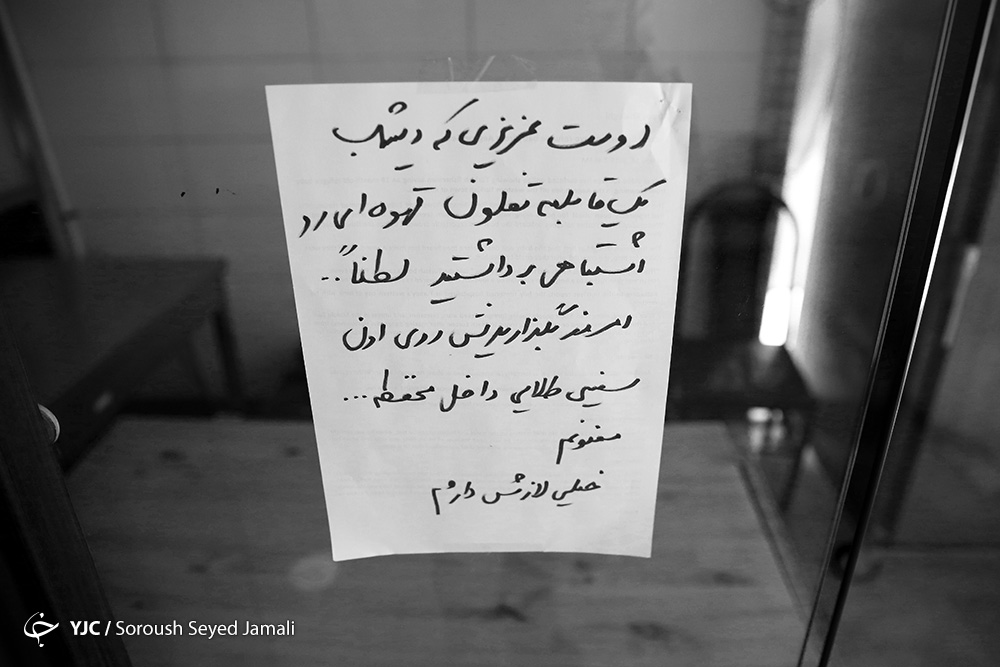 دوست عزیزی که دیشب
یک قابلمه تفلون قهوه ای رو
اشتباهی برداشتید لطفاً..
امشب بگذاریدش روی اون
سینی طلایی داخل محوطه...
ممنونم
خیلی لازمش دارم
YJC / Soroush Seyed Jamali